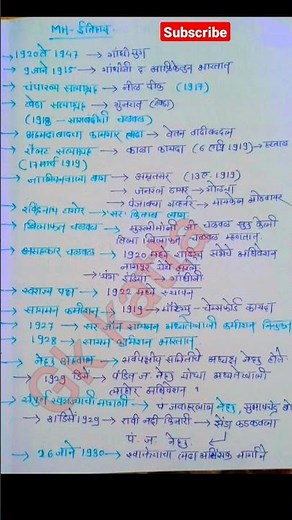 Subscribe
MH- इतिहास
→ 1920 ते 1947 → गांधीयुग
→ 9 जाने 1915 → गांधीजी द आफ्रिकेतून भारतात
→ चंपारण्य सत्याग्रह → नील पीक (1917)
→ खेडा सत्याग्रह → गुजरात (खेडा)
(1918 - साराबंदीची चळवळ)
→ अहमदाबादचा कामगार लढा → वेतन वाढीबद्दल
→ रौलेट सत्याग्रह → काळा कायदा (6 एप्रि 1919) →
(17 मार्च 1919)
→ जालियनवाला बाग → अमृतसर (13 ए. 1919)
→ जनरल डायर → गोळ्या
→ पंजाबचा गव्हर्नर → मायकेल ओडवायर
→ रविंद्रनाथ टागोर → सर किताब त्याग
→ खिलाफत चळवळ → मुस्लीमांनी जी चळवळ सुरु केली
तिला खिलाफत चळवळ म्हणतात
→ असहकार चळवळ → 1920 मध्ये राष्ट्रीय सभेचे अधिवेशन
नागपूर येथे
→ यंग इंडिया → गांधीजी
→ स्वराज्य पक्ष → 1922 मध्ये स्थापन
→ सायमन कमीशन → 1919 → माँटेग्यु - चेम्सफोर्ड कायदा
→ 1927 → सर जॉन सायमन अध्यक्षतेखाली कमिशन नियुक्त
→ 1928 → सायमन कमिशन भारतात
→ नेहरू अहवाल → सर्वपक्षीय समितीचे अध्यक्ष नेहरू होते
→ 1929 डिसें → पंडित ज. नेहरू यांच्या अध्यक्षतेखाली
लाहोर अधिवेशन
→ संपूर्ण स्वातंत्र्याची मागणी → पं. जवाहरलाल नेहरू, सुभाषचंद्र बो
→ 31 डिसें 1929 → रावी नदी किनारी → झेंडा फडकवला
पं. ज. नेहरू
→ 26 जाने 1930 → स्वातंत्र्याचा लढा अहिंसक मार्गाने